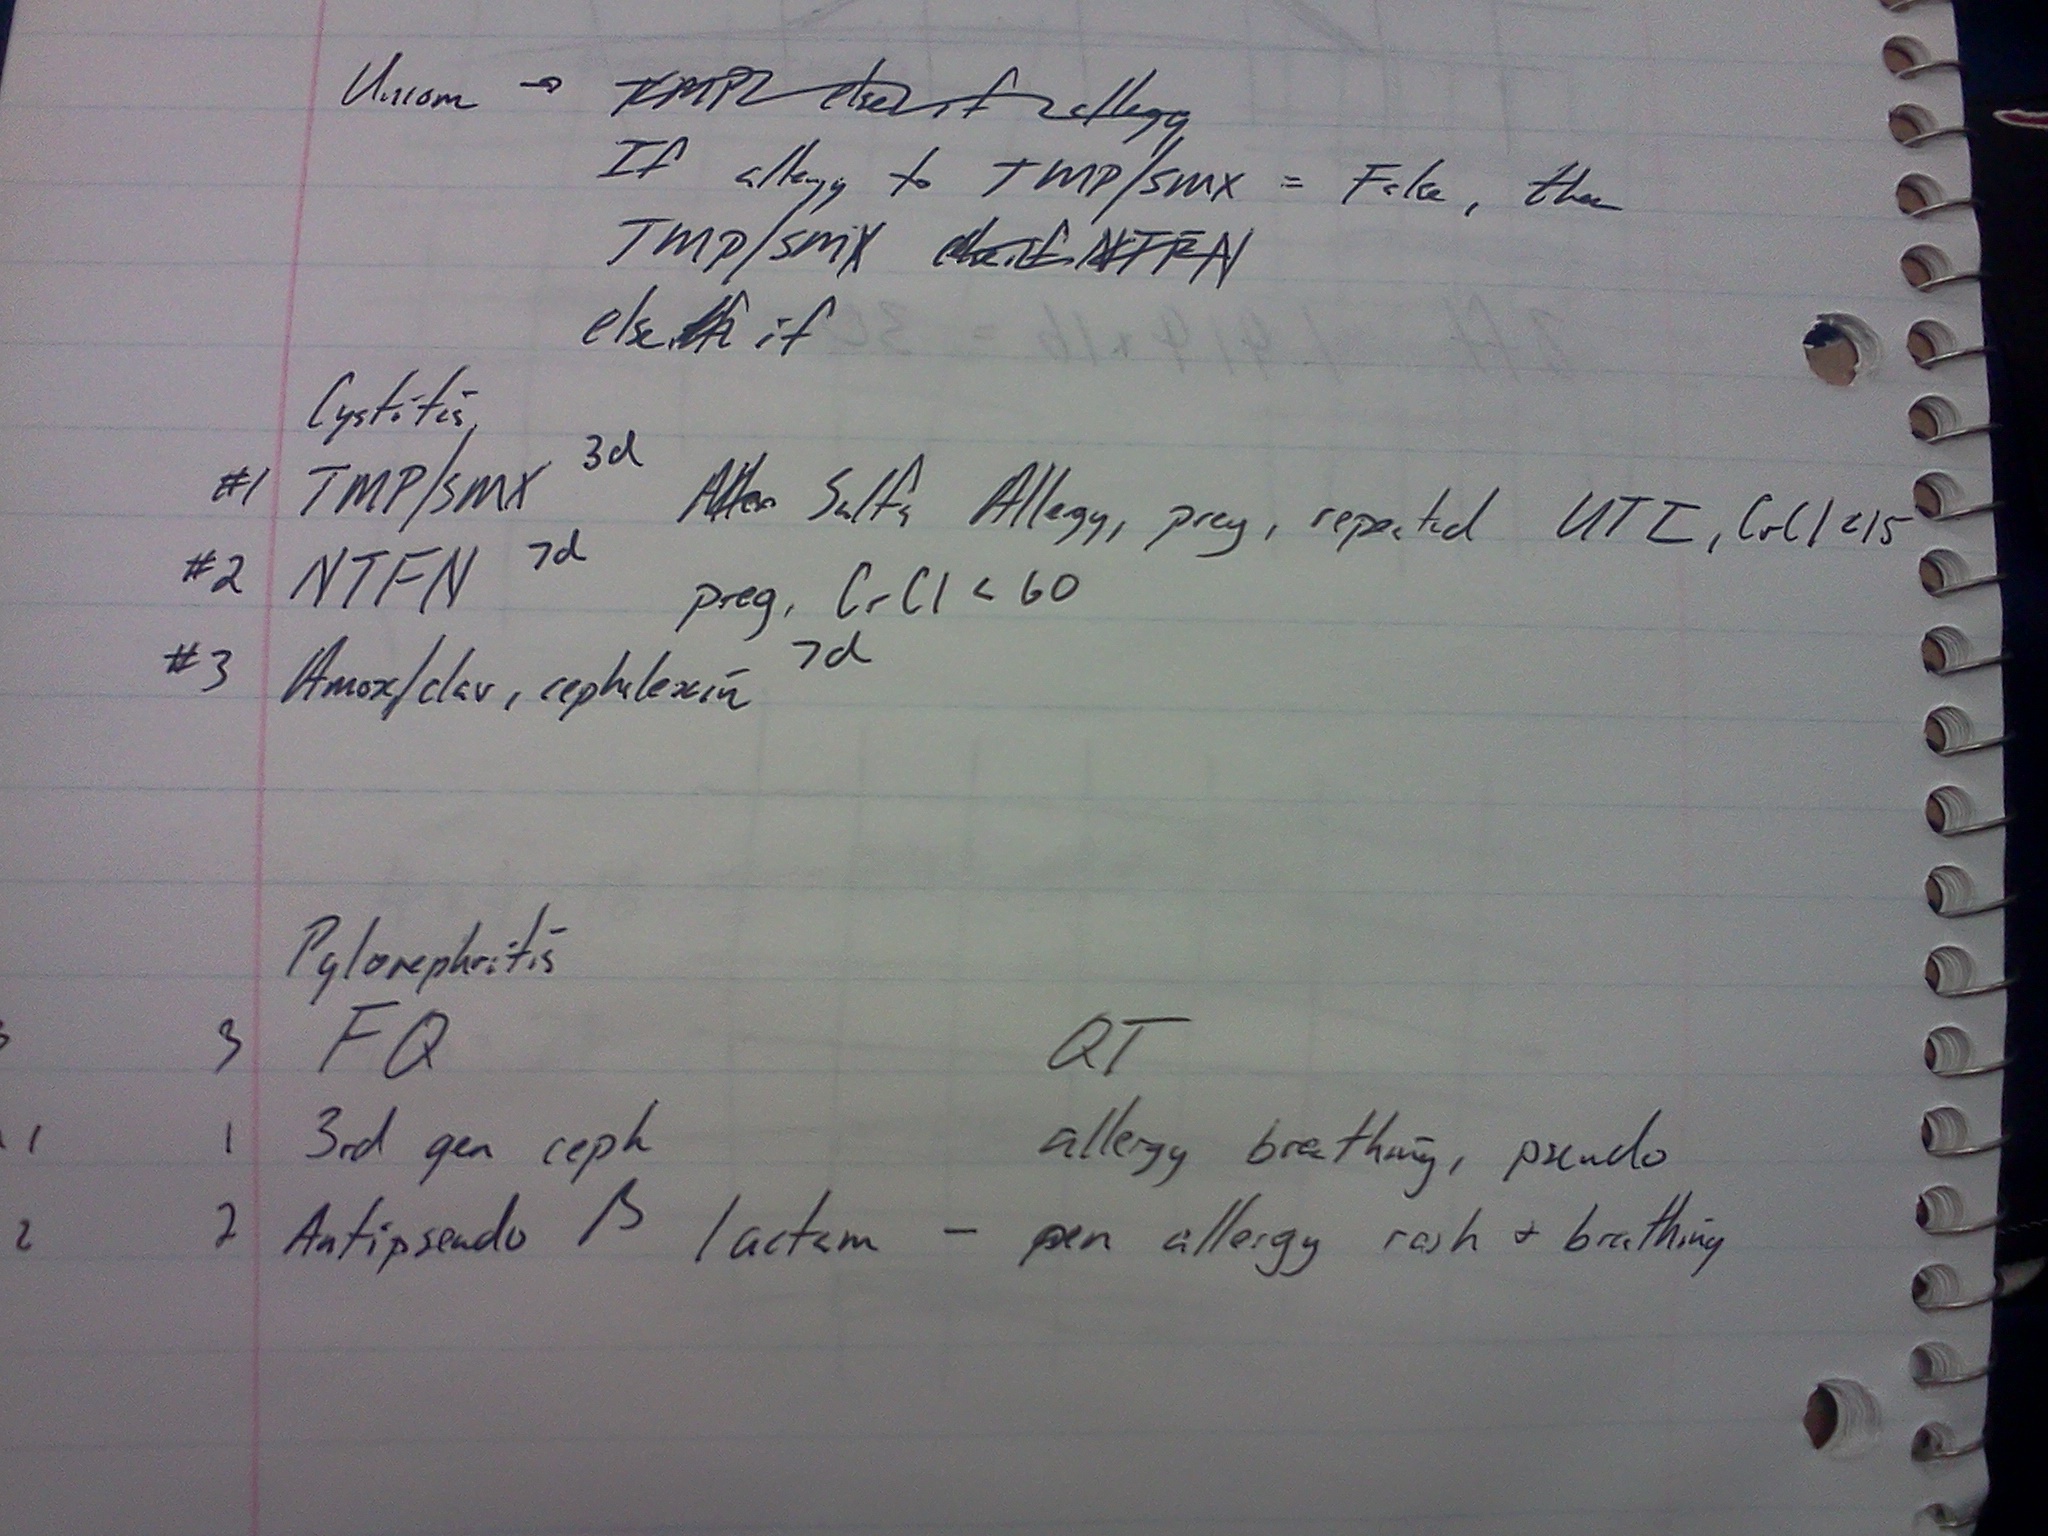 Uncom → TMP else if allergy
If allergy to TMP/SMX = False, then
TMP/SMX else if NTFN
else if
Cystitis
#1 TMP/SMX 3d Sulfa Allergy, preg, repeated UTI, CrCl<15
#2 NTFN 7d preg, CrCl < 60
#3 Amox/clav, cephalexin 7d
Pylonephritis
3 FQ QT
1 1 3rd gen ceph allergy breathing, pseudo
2 2 Antipseudo β lactam - pen allergy rash + breathing